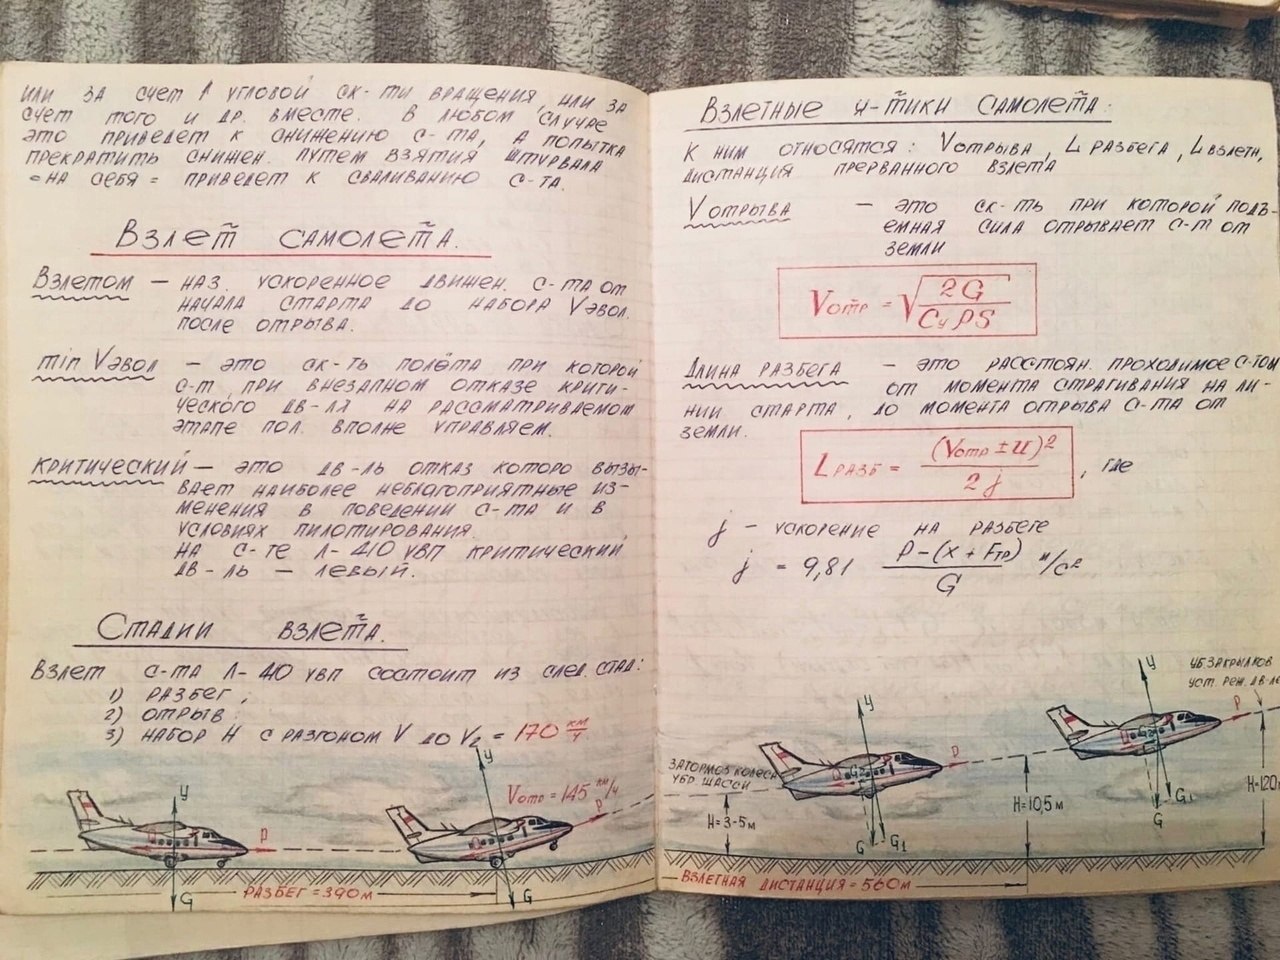 или за счет ↑ угловой ск-ти вращения, или за
счет того и др. вместе. В любом случае
это приведет к снижению с-та, а попытка
прекратить снижен. путем взятия штурвала
=на себя= приведет к сваливанию с-та.
Взлет самолета.
Взлетом — наз. ускоренное движен. с-та от
начала старта до набора Vэвол.
после отрыва.
min Vэвол — это ск-ть полета при которой
с-т при внезапном отказе крити-
ческого дв-ля на рассматриваемом
этапе пол. вполне управляем.
Критический — это дв-ль отказ которо вызы-
вает наиболее неблагоприятные из-
менения в поведении с-та и в
условиях пилотирования.
На с-те Л-410 УВП критический
дв-ль — левый.
Стадии взлета.
Взлет с-та Л-410 УВП состоит из след. стад:
1) разбег;
2) отрыв
3) набор H с разгоном V до V₂ = 170 км/ч
Vотр = 145 км/ч
У
У
P
P
G
G
Разбег = 390 м
Взлетные х-тики самолета:
К ним относятся: Vотрыва, L разбега, L взлетн,
дистанция прерванного взлета
V отрыва — это ск-ть при которой подъ-
емная сила отрывает с-т от
земли
Vотр = √(2G / CуρS)
Длина разбега — это расстоян. проходимое с-том
от момента страгивания на ли-
нии старта, до момента отрыва с-та от
земли.
L разб = (Vотр ± U)² / 2j , где
j — ускорение на разбеге
j = 9,81 P-(x + Fтр) / G м/с²
Уб закрылков
уст. реж. дв-ле
У
P
У
P
Затормоз колеса
убр. шасси
H=3-5м
H=10,5м
H=120
G
G₁
G₁
G
Взлетная дистанция = 560м